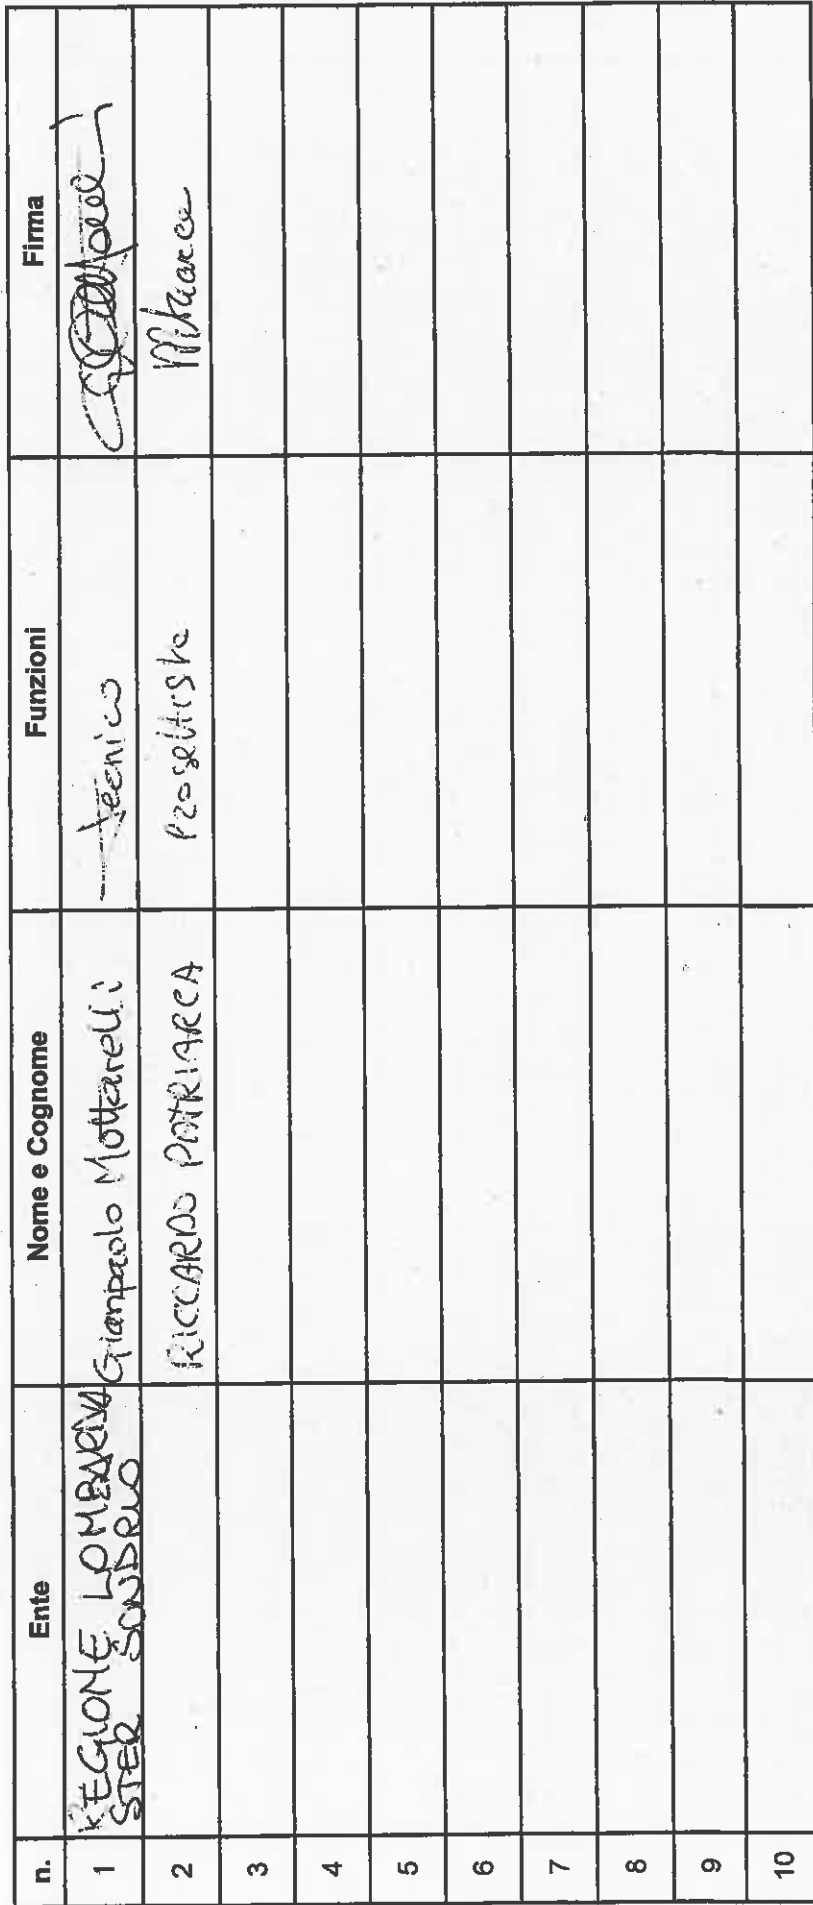 n. Ente Nome e Cognome Funzioni Firma
1 REGIONE LOMBARDIA Gianpaolo Mottarelli tecnico
STER SONDRIO
2 RICCARDO PATRIARCA Progettista
3
4
5
6
7
8
9
10